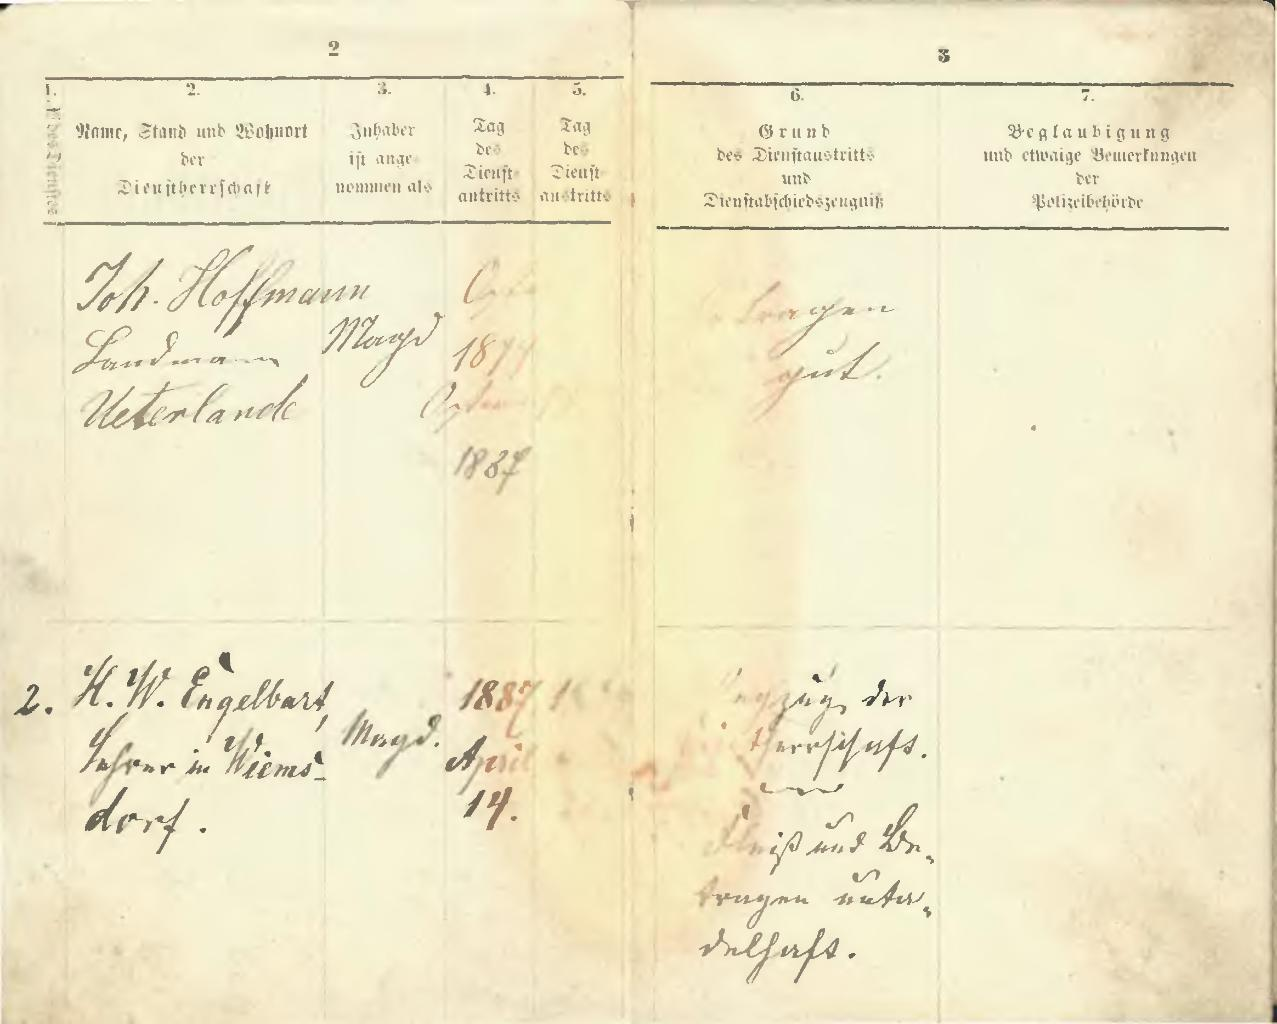 2
1.
2.
3.
4.
5.
№ des Dienstes
Name, Stand und Wohnort
der
Dienstherrschaft
Inhaber
ist ange-
nommen als
Tag
des
Dienst-
antritts
Tag
des
Dienst-
austritts
Joh. Hoffmann
Landmann
Ueterlande
Magd
1887
2.
H. W. Engelbart,
Lehrer in Wiems-
dorf.
Magd.
1887
April
14.
3
6.
7.
Grund
des Dienstaustritts
und
Dienstabschiedszeugniß
Beglaubigung
und etwaige Bemerkungen
der
Polizeibehörde
gut.
der
Herrschaft.
und Be-
tragen unta-
delhaft.